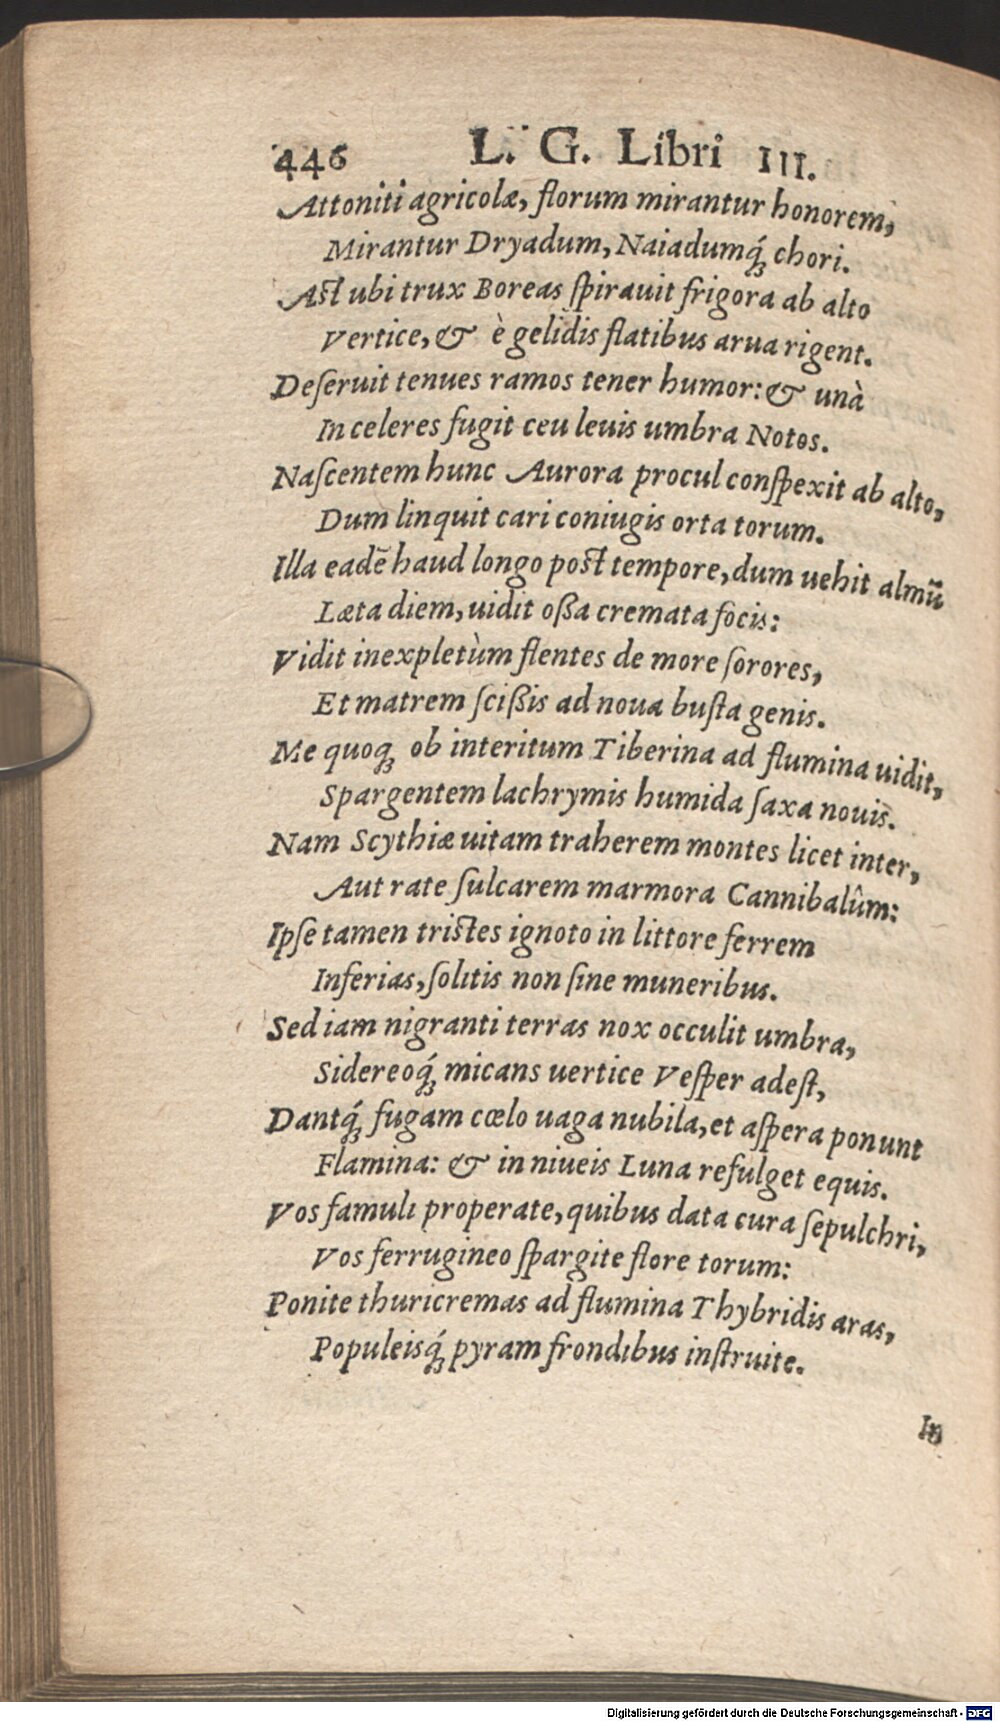 446 L. G. Libri III.
Attoniti agricolæ, florum mirantur honorem,
Mirantur Dryadum, Naiadumq́ꝫ chori.
Ast ubi trux Boreas ſpirauit frigora ab alto
Vertice, & è gelidis flatibus arua rigent.
Deſeruit tenues ramos tener humor: & unà
In celeres fugit ceu leuis umbra Notos.
Naſcentem hunc Aurora procul conſpexit ab alto,
Dum linquit cari coniugis orta torum.
Illa eadē haud longo post tempore, dum uehit almū
Læta diem, uidit oßa cremata focis:
Vidit inexpletùm flentes de more ſorores,
Et matrem ſcißis ad noua buſta genis.
Me quoqꝫ ob interitum Tiberina ad flumina uidit,
Spargentem lachrymis humida ſaxa nouis.
Nam Scythiæ uitam traherem montes licet inter,
Aut rate ſulcarem marmora Cannibalûm:
Ipſe tamen tristes ignoto in littore ferrem
Inferias, ſolitis non ſine muneribus.
Sed iam nigranti terras nox occulit umbra,
Sidereoq́ꝫ micans uertice Veſper adeſt,
Dantq́ꝫ fugam cœlo uaga nubila, et aſpera ponunt
Flamina: & in niueis Luna refulget equis.
Vos famuli properate, quibus data cura ſepulchri,
Vos ferrugineo ſpargite flore torum:
Ponite thuricremas ad flumina Thybridis aras,
Populeisq́ꝫ pyram frondibus inſtruite.
In
Digitalisierung gefördert durch die Deutsche Forschungsgemeinschaft - DFG